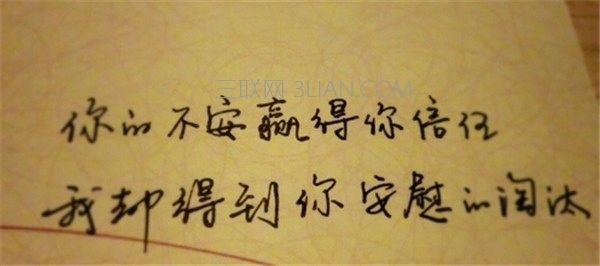 三联网 3LIAN.COM
你的不安赢得你信任
我却得到你安慰的淘汰